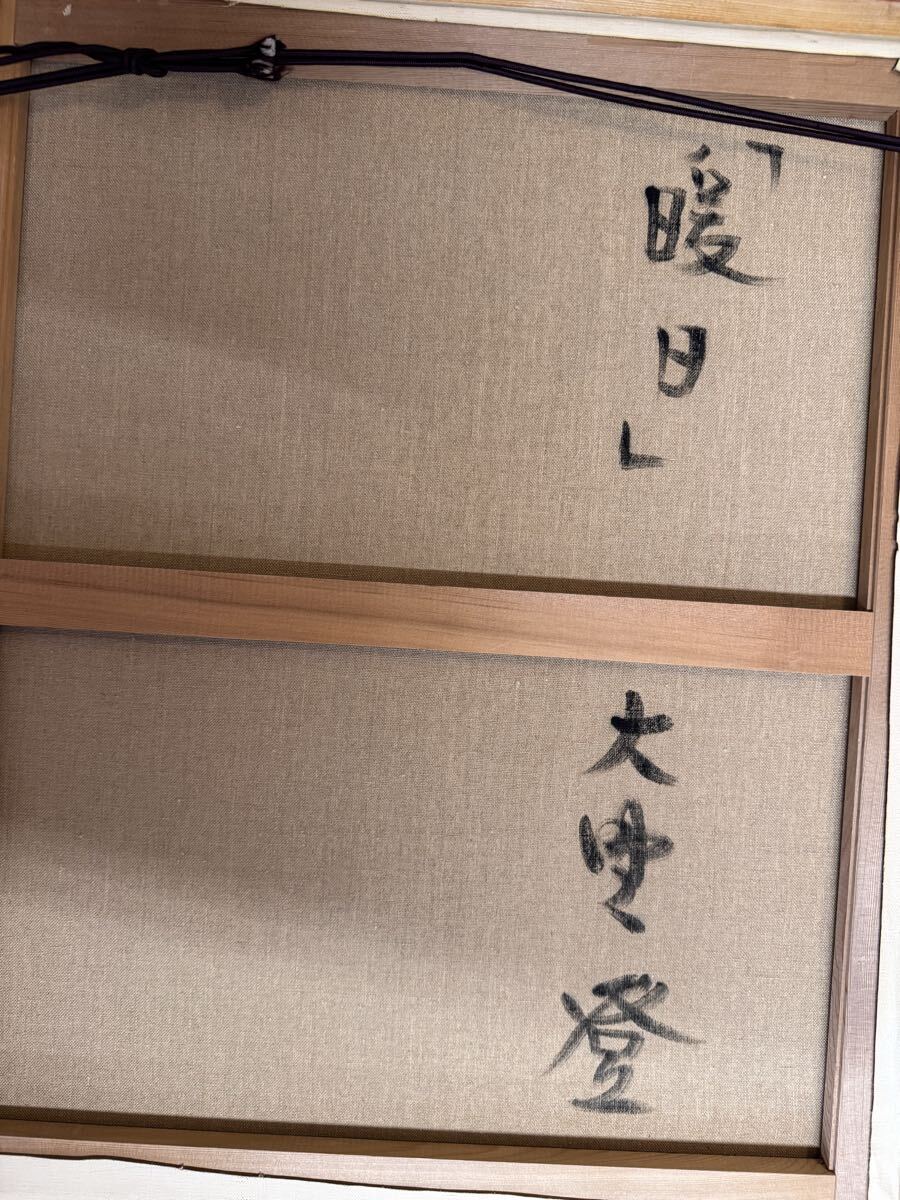 「暖日」
大 登